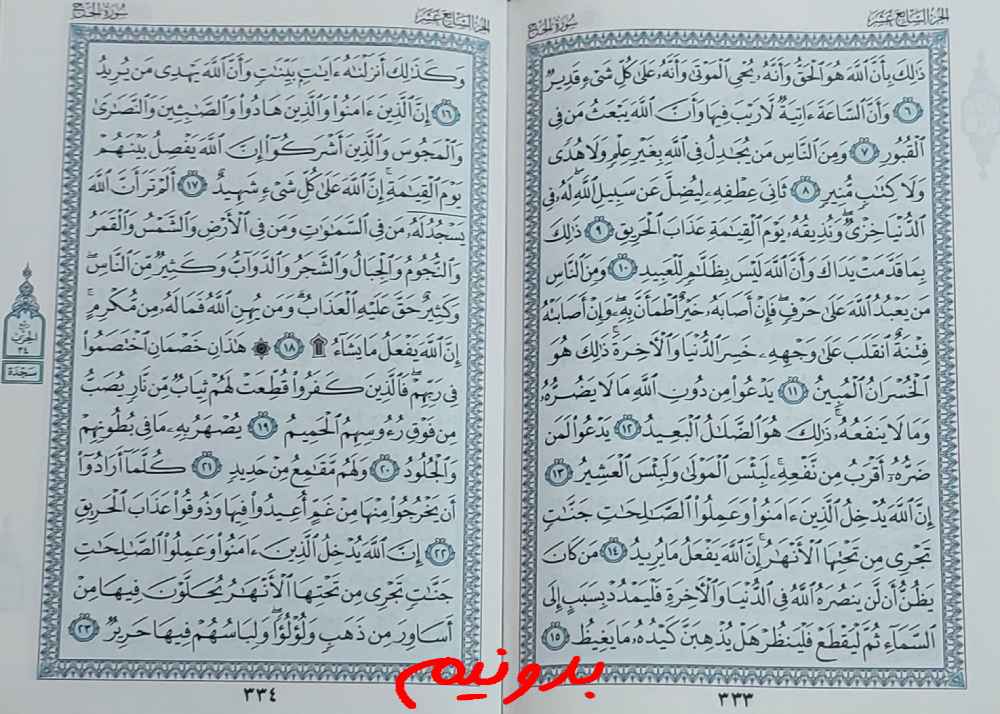 الجزء السابع عشر
سورة الحج
ذَٰلِكَ بِأَنَّ ٱللَّهَ هُوَ ٱلْحَقُّ وَأَنَّهُۥ يُحْىِ ٱلْمَوْتَىٰ وَأَنَّهُۥ عَلَىٰ كُلِّ شَىْءٍ قَدِيرٌ
٦ وَأَنَّ ٱلسَّاعَةَ ءَاتِيَةٌ لَّا رَيْبَ فِيهَا وَأَنَّ ٱللَّهَ يَبْعَثُ مَن فِى
ٱلْقُبُورِ ٧ وَمِنَ ٱلنَّاسِ مَن يُجَٰدِلُ فِى ٱللَّهِ بِغَيْرِ عِلْمٍ وَلَا هُدًى
وَلَا كِتَٰبٍ مُّنِيرٍ ٨ ثَانِىَ عِطْفِهِۦ لِيُضِلَّ عَن سَبِيلِ ٱللَّهِ ۖ لَهُۥ فِى
ٱلدُّنْيَا خِزْىٌ ۖ وَنُذِيقُهُۥ يَوْمَ ٱلْقِيَٰمَةِ عَذَابَ ٱلْحَرِيقِ ٩ ذَٰلِكَ
بِمَا قَدَّمَتْ يَدَاكَ وَأَنَّ ٱللَّهَ لَيْسَ بِظَلَّٰمٍ لِّلْعَبِيدِ ١٠ وَمِنَ ٱلنَّاسِ
مَن يَعْبُدُ ٱللَّهَ عَلَىٰ حَرْفٍ ۖ فَإِنْ أَصَابَهُۥ خَيْرٌ ٱطْمَأَنَّ بِهِۦ ۖ وَإِنْ أَصَابَتْهُ
فِتْنَةٌ ٱنقَلَبَ عَلَىٰ وَجْهِهِۦ خَسِرَ ٱلدُّنْيَا وَٱلْءَاخِرَةَ ۚ ذَٰلِكَ هُوَ
ٱلْخُسْرَانُ ٱلْمُبِينُ ١١ يَدْعُوا۟ مِن دُونِ ٱللَّهِ مَا لَا يَضُرُّهُۥ
وَمَا لَا يَنفَعُهُۥ ۚ ذَٰلِكَ هُوَ ٱلضَّلَٰلُ ٱلْبَعِيدُ ١٢ يَدْعُوا۟ لَمَن
ضَرُّهُۥٓ أَقْرَبُ مِن نَّفْعِهِۦ ۚ لَبِئْسَ ٱلْمَوْلَىٰ وَلَبِئْسَ ٱلْعَشِيرُ ١٣
إِنَّ ٱللَّهَ يُدْخِلُ ٱلَّذِينَ ءَامَنُوا۟ وَعَمِلُوا۟ ٱلصَّٰلِحَٰتِ جَنَّٰتٍ
تَجْرِى مِن تَحْتِهَا ٱلْأَنْهَٰرُ ۚ إِنَّ ٱللَّهَ يَفْعَلُ مَا يُرِيدُ ١٤ مَن كَانَ
يَظُنُّ أَن لَّن يَنصُرَهُ ٱللَّهُ فِى ٱلدُّنْيَا وَٱلْءَاخِرَةِ فَلْيَمْدُدْ بِسَبَبٍ إِلَى
ٱلسَّمَآءِ ثُمَّ لْيَقْطَعْ فَلْيَنظُرْ هَلْ يُذْهِبَنَّ كَيْدُهُۥ مَا يَغِيظُ ١٥
٣٣٣
سورة الحج
الجزء السابع عشر
وَكَذَٰلِكَ أَنزَلْنَٰهُ ءَايَٰتٍۭ بَيِّنَٰتٍ وَأَنَّ ٱللَّهَ يَهْدِى مَن يُرِيدُ
١٦ إِنَّ ٱلَّذِينَ ءَامَنُوا۟ وَٱلَّذِينَ هَادُوا۟ وَٱلصَّٰبِـِٔينَ وَٱلنَّصَٰرَىٰ
وَٱلْمَجُوسَ وَٱلَّذِينَ أَشْرَكُوٓا۟ إِنَّ ٱللَّهَ يَفْصِلُ بَيْنَهُمْ
يَوْمَ ٱلْقِيَٰمَةِ ۚ إِنَّ ٱللَّهَ عَلَىٰ كُلِّ شَىْءٍ شَهِيدٌ ١٧ أَلَمْ تَرَ أَنَّ ٱللَّهَ
يَسْجُدُ لَهُۥ مَن فِى ٱلسَّمَٰوَٰتِ وَمَن فِى ٱلْأَرْضِ وَٱلشَّمْسُ وَٱلْقَمَرُ
وَٱلنُّجُومُ وَٱلْجِبَالُ وَٱلشَّجَرُ وَٱلدَّوَآبُّ وَكَثِيرٌ مِّنَ ٱلنَّاسِ ۖ
وَكَثِيرٌ حَقَّ عَلَيْهِ ٱلْعَذَابُ ۗ وَمَن يُهِنِ ٱللَّهُ فَمَا لَهُۥ مِن مُّكْرِمٍ ۚ
إِنَّ ٱللَّهَ يَفْعَلُ مَا يَشَآءُ ۩ ١٨ ۞ هَٰذَانِ خَصْمَانِ ٱخْتَصَمُوا۟
فِى رَبِّهِمْ ۖ فَٱلَّذِينَ كَفَرُوا۟ قُطِّعَتْ لَهُمْ ثِيَابٌ مِّن نَّارٍ يُصَبُّ
مِن فَوْقِ رُءُوسِهِمُ ٱلْحَمِيمُ ١٩ يُصْهَرُ بِهِۦ مَا فِى بُطُونِهِمْ
وَٱلْجُلُودُ ٢٠ وَلَهُم مَّقَٰمِعُ مِنْ حَدِيدٍ ٢١ كُلَّمَآ أَرَادُوٓا۟
أَن يَخْرُجُوا۟ مِنْهَا مِنْ غَمٍّ أُعِيدُوا۟ فِيهَا وَذُوقُوا۟ عَذَابَ ٱلْحَرِيقِ
٢٢ إِنَّ ٱللَّهَ يُدْخِلُ ٱلَّذِينَ ءَامَنُوا۟ وَعَمِلُوا۟ ٱلصَّٰلِحَٰتِ
جَنَّٰتٍ تَجْرِى مِن تَحْتِهَا ٱلْأَنْهَٰرُ يُحَلَّوْنَ فِيهَا مِنْ
أَسَاوِرَ مِن ذَهَبٍ وَلُؤْلُؤًا ۖ وَلِبَاسُهُمْ فِيهَا حَرِيرٌ ٢٣
٣٣٤
الحزب
٣٤
سجدة
بدونیم